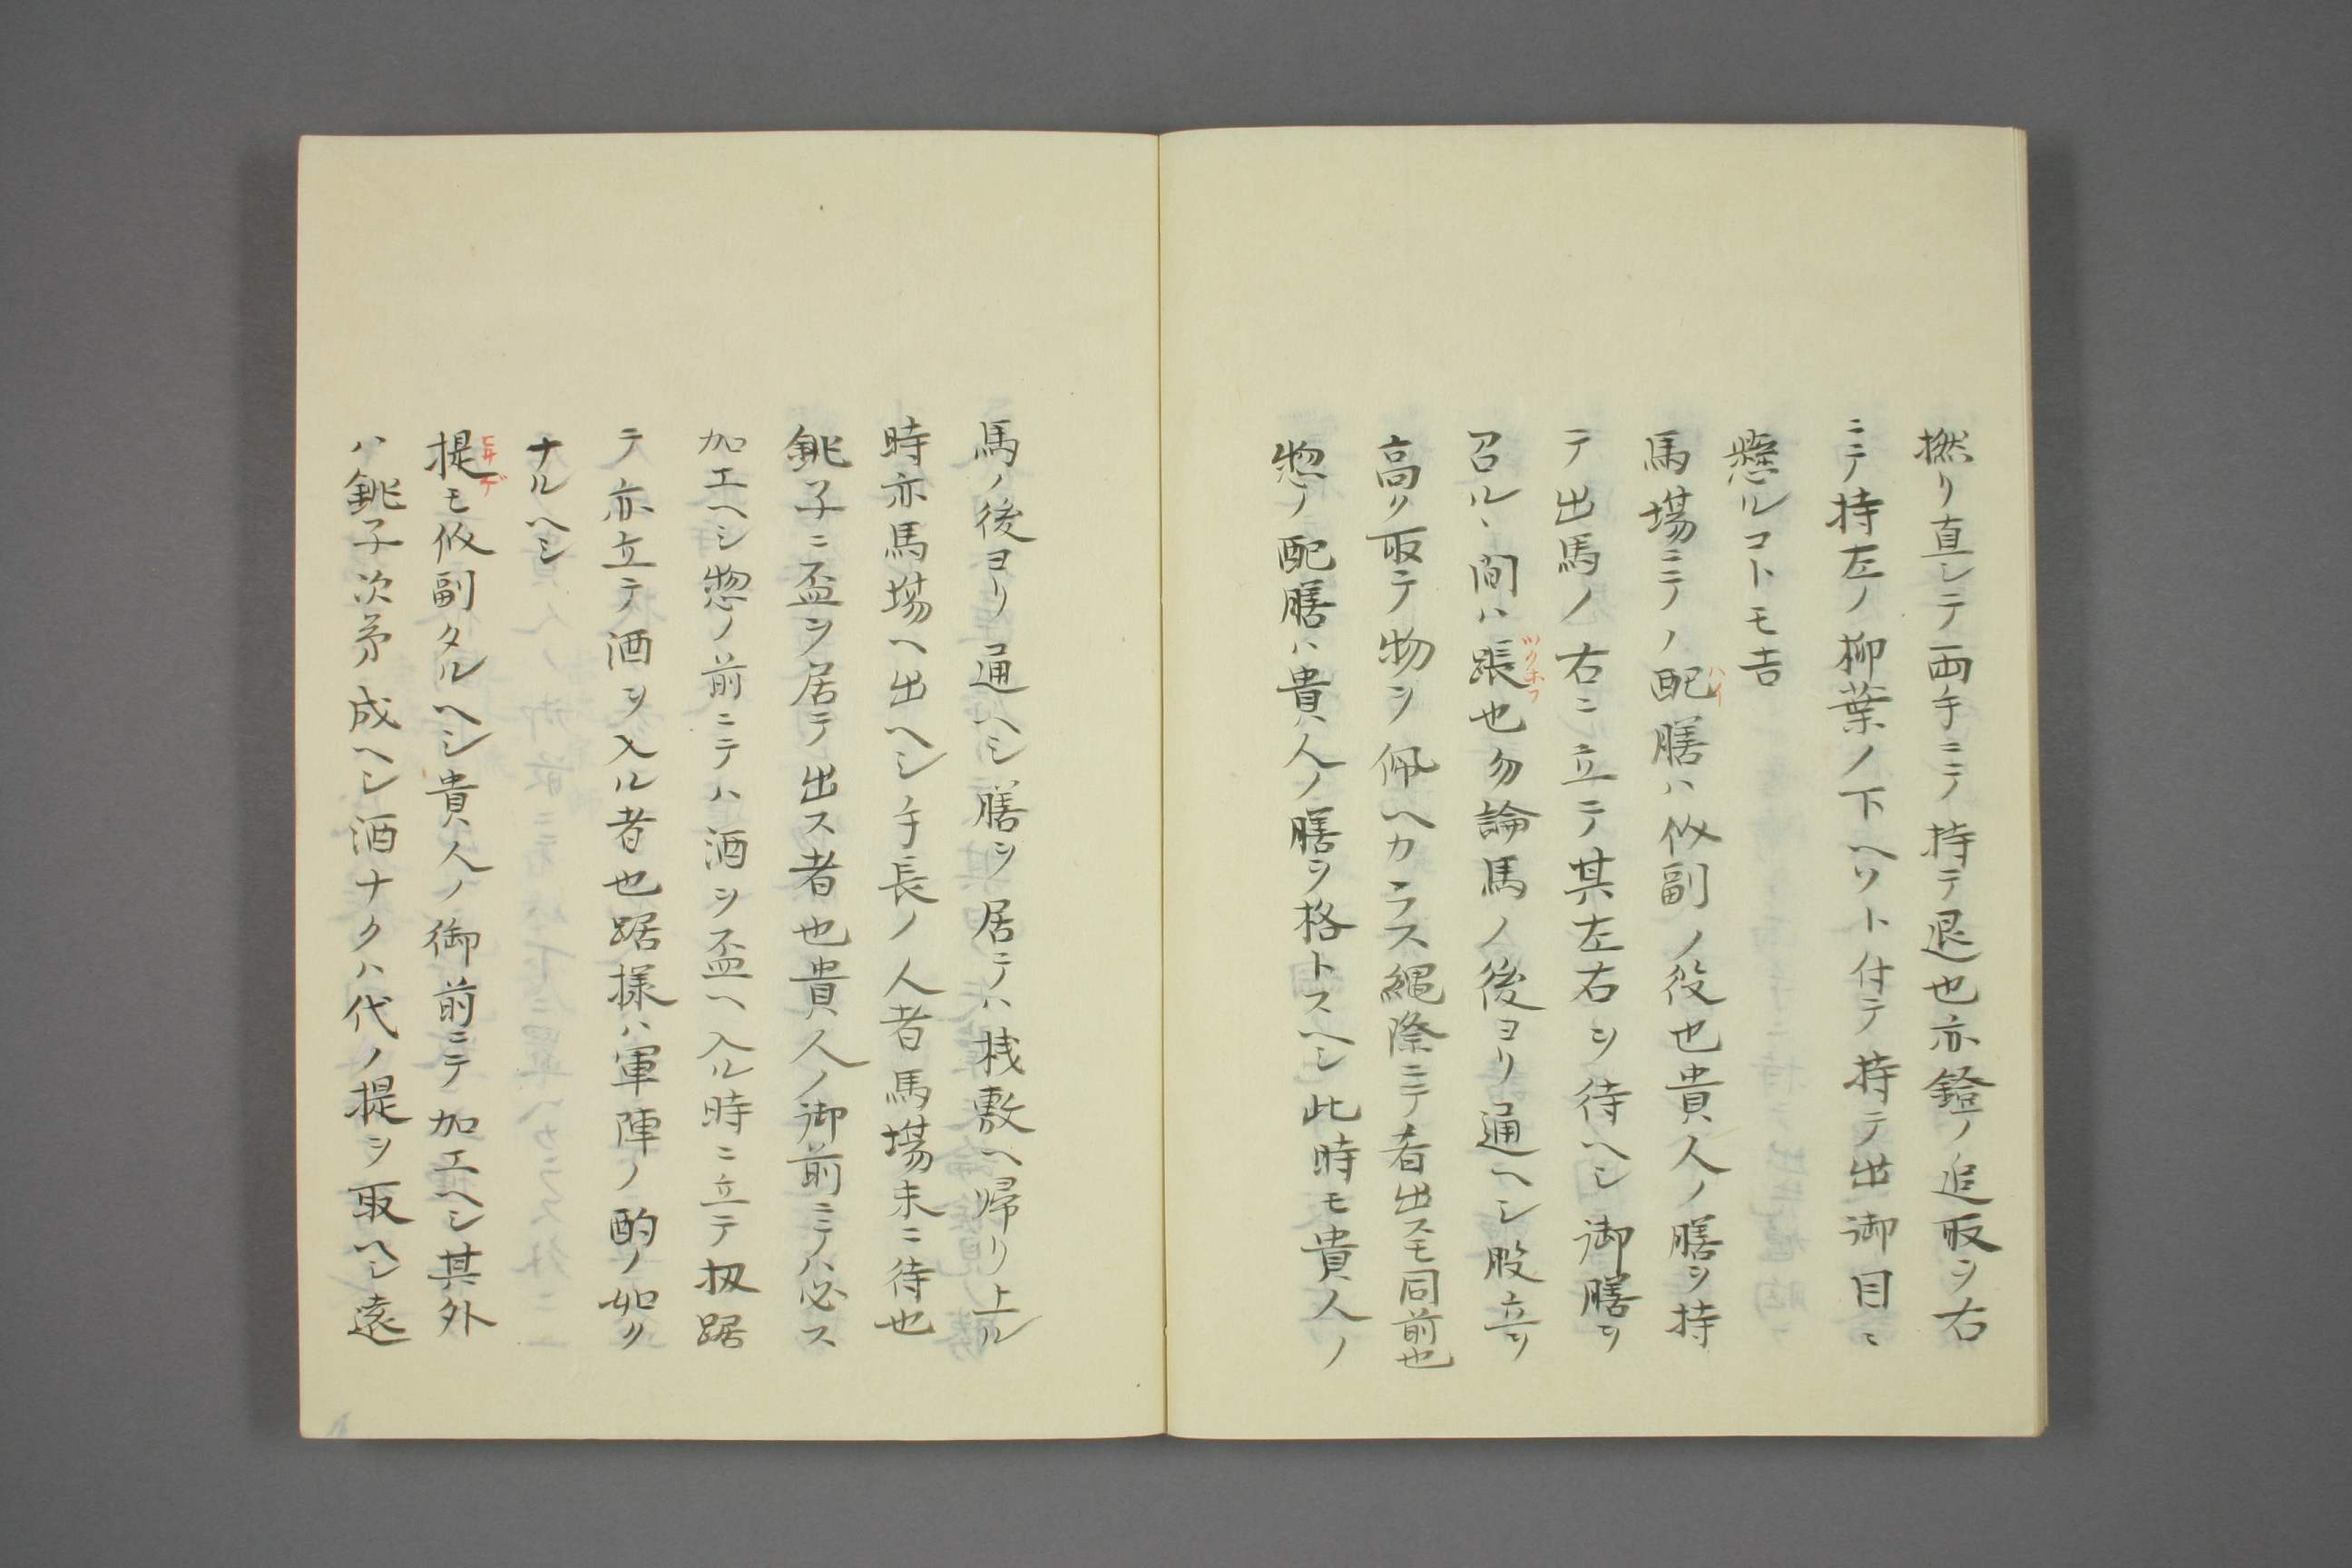 撚リ直シテ両手ニテ持テ退也亦鐙ノ追取ヲ右
ニテ持左ノ柳葉ノ下ヘソト付テ持テ出御目ニ
懸ルコトモ吉
馬場ニテノ配膳ハ佽副ノ役也貴人ノ膳ヲ持
ハイ
テ出馬ノ右ニ立テ其左右ヲ待ヘシ御膳ヲ
召ルヽ間ハ踞也勿論馬ノ後ヨリ通ヘシ股立ヲ
ツクホフ
高ク取テ物ヲ佩ヘカラス縄際ニテ肴出スモ同前也
惣ノ配膳ハ貴人ノ膳ヲ格トスヘシ此時モ貴人ノ
馬ノ後ヨリ通ヘシ膳ヲ居テハ桟敷ヘ帰リ上ル
時亦馬場ヘ出ヘシ手長ノ人者馬場末ニ待也
銚子ニ盃ヲ居テ出ス者也貴人ノ御前ニテハ必ス
加エヘシ惣ノ前ニテハ酒ヲ盃ヘ入ル時ニ立テ扨踞
テ亦立テ酒ヲ入ル者也踞様ハ軍陣ノ酌ノ如ク
ナルヘシ
提モ佽副タルヘシ貴人ノ御前ニテ加エヘシ其外
ヒサゲ
ハ銚子次第成ヘシ酒ナクハ代ノ提ヲ取ヘシ遠